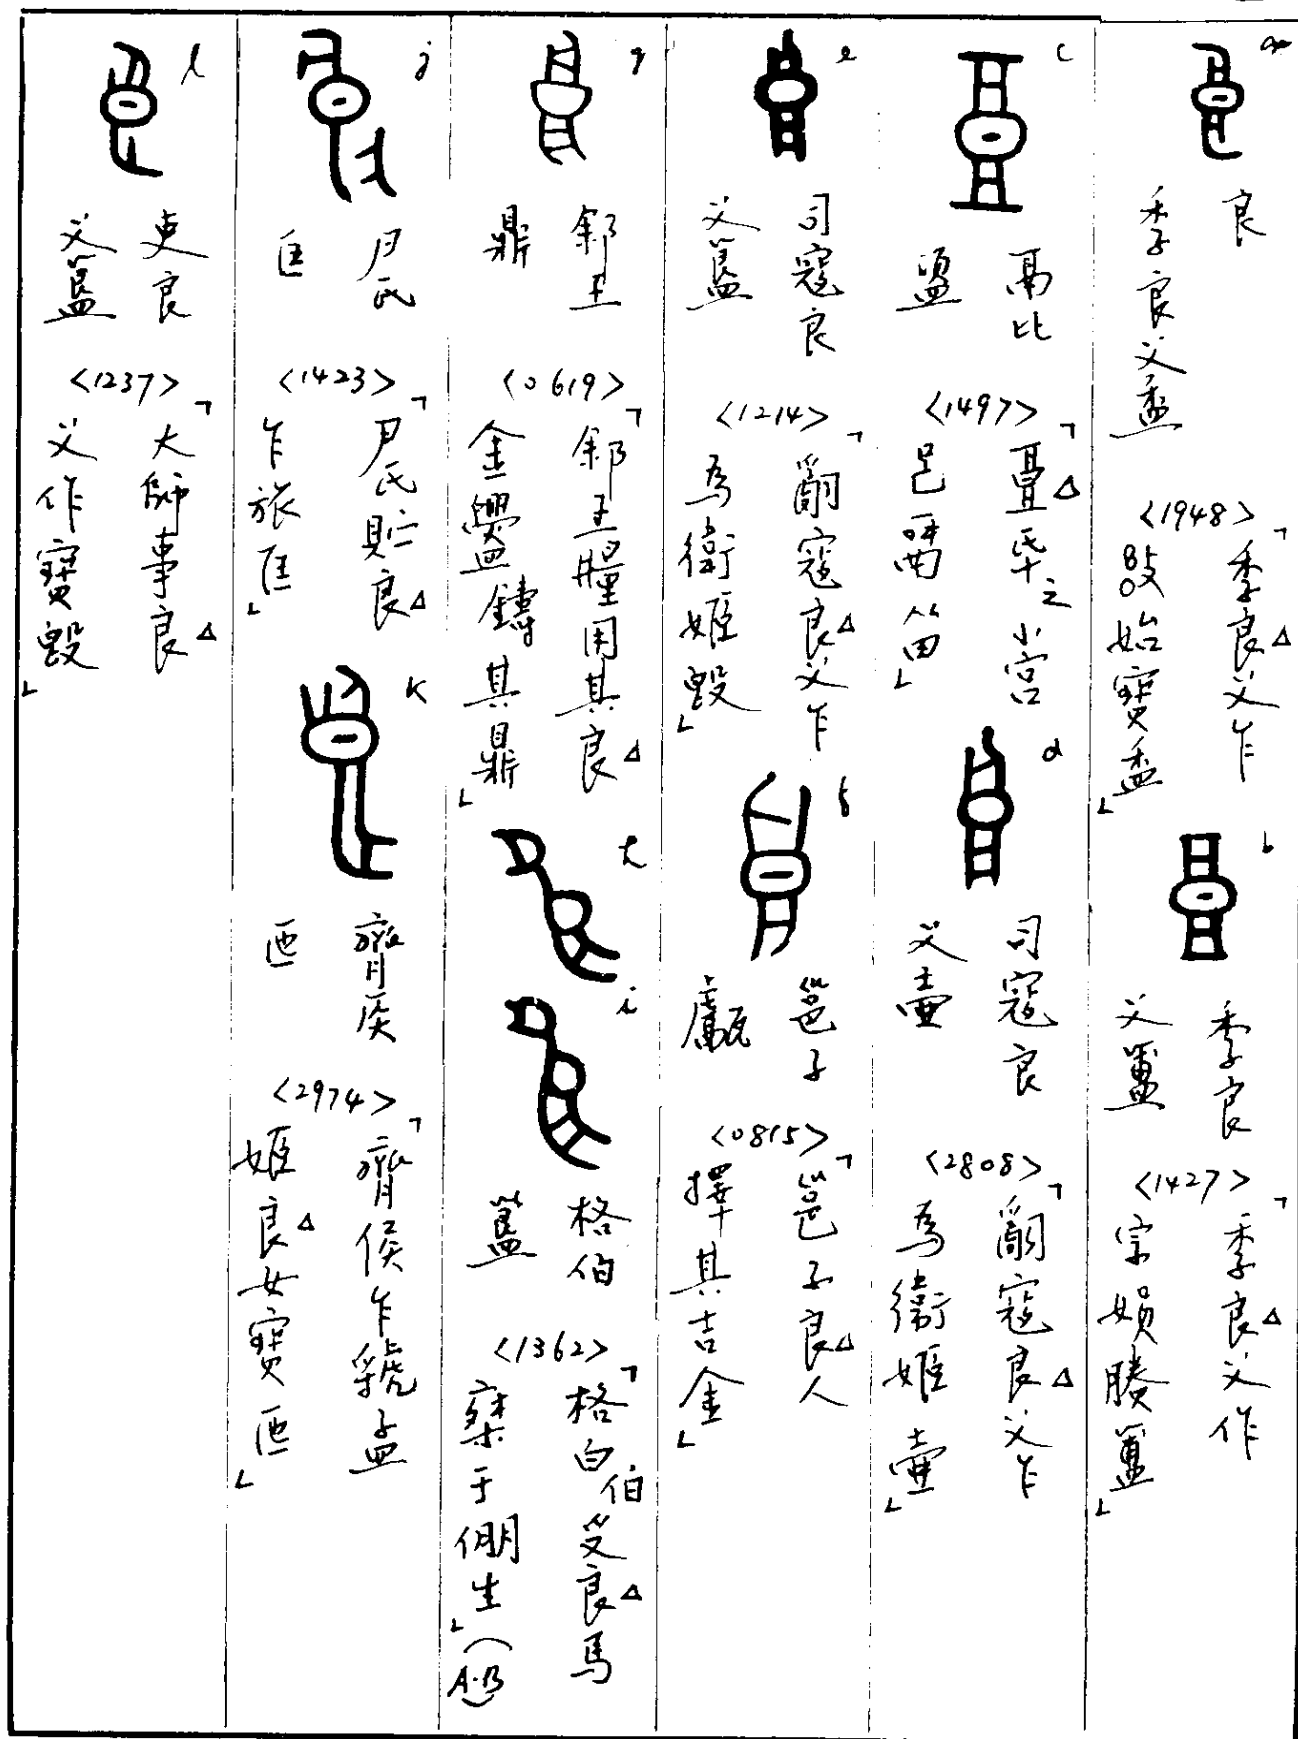 a
良
季良父盉
<1948>
「季良父乍
始寶盉」
b
季良
父簠
<1427>
「季良父作
宗媍媵簠」
c
鬲比
盨
<1497>
小宮
d
司寇良
父壺
<2808>
「𤔲寇良父乍
為衛姬壺」
e
司寇良
父簋
<1214>
「𤔲寇良父乍
為衛姬𣪘」
f
邕子
甗
<0815>
「邕子良人
擇其吉金」
g
䣄王
鼎
<0619>
「䣄王糧用其良
金鑄其鼎」
h
i
格伯
簋
<1362>
「格白伯受良馬
于倗生」(A·B)
j
尹氏
匡
<1423>
「尹氏貯良
乍旅匡」
k
齊侯
匜
<2974>
「齊侯乍虢孟
姬良女寶匜」
l
吏良
父簋
<1237>
「大師事良
父作寶𣪘」